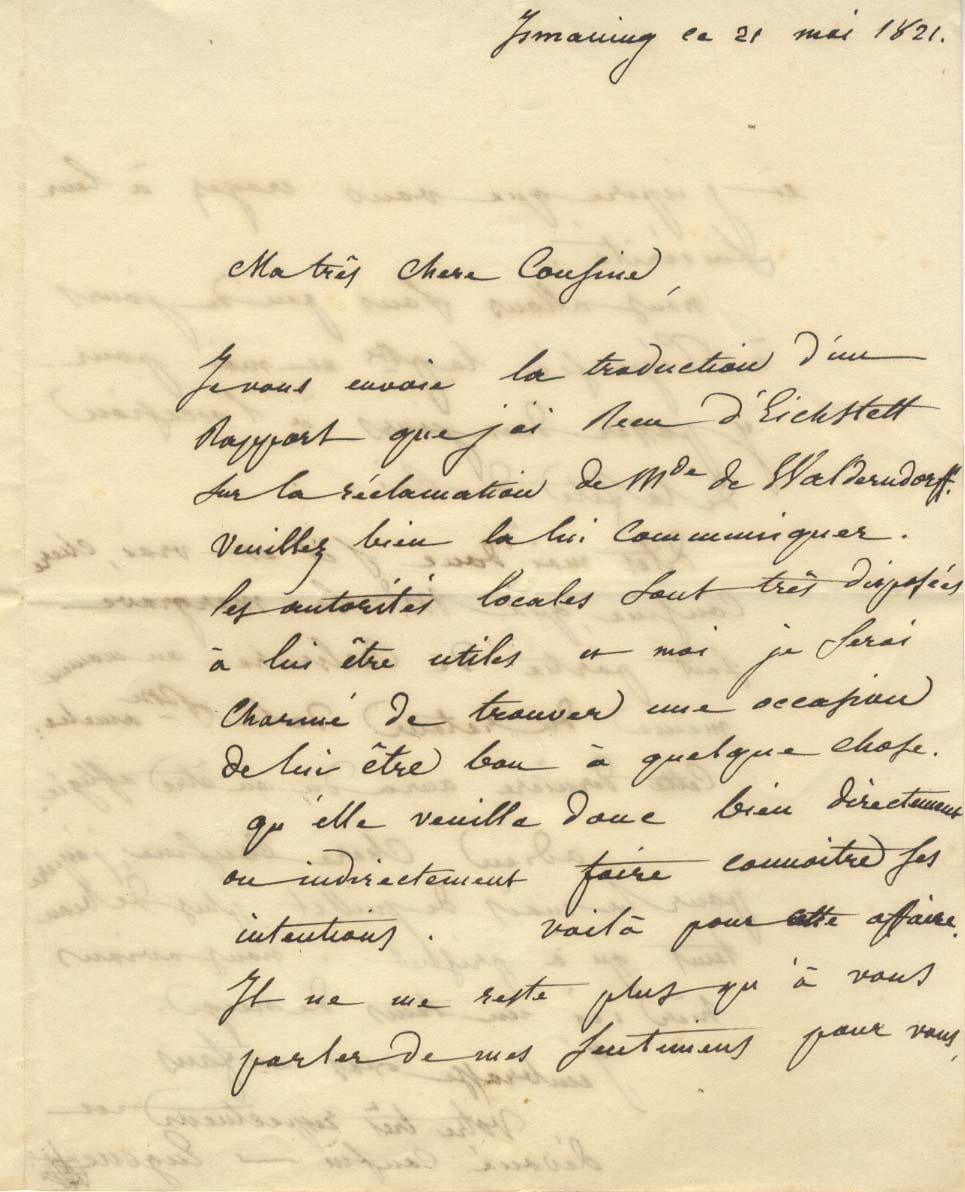 Ismaning ce 21 mai 1821.
Ma très chere Cousine,
Je vous envoie la traduction d'un
Rapport que j'ai Recu d'Eichstett
sur la réclamation de Mde de Walderndorff.
veuillez bien la lui communiquer.
les autorités locales sont très disposées
à lui être utiles et moi je serai
charmé de trouver une occasion
de lui être bon à quelque chose.
qu'elle veuille donc bien directement
ou indirectement faire connoitre ses
intentions. voilà pour cette affaire.
Il ne me reste plus qu'à vous
parler de mes sentimens pour vous,